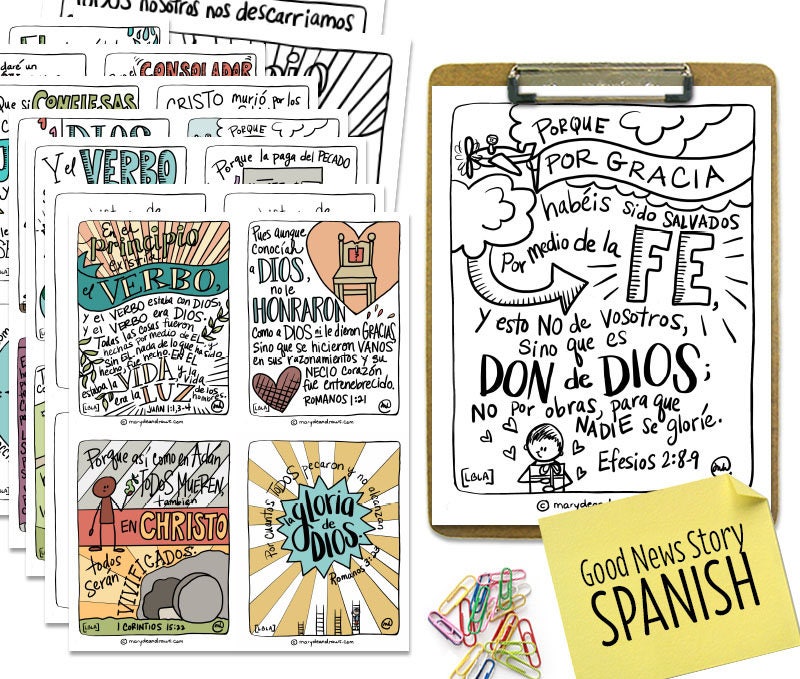 TODOS nosotros nos descarriamos
daré un
CONSOLADOR
que si CONFIESAS
CRISTO murió por los
DIOS
PORQUE
Y el VERBO
Porque la paga del PECADO
En el
principio
existía
el VERBO,
y el VERBO estaba con DIOS,
y el VERBO era DIOS.
Todas las cosas fueron
hechas por medio de EL y
sin EL nada de lo que ha sido
hecho, fue hecho. EN EL
estaba la VIDA, y la vida
era la LUZ de los
hombres.
JUAN 1:1,3-4
[LBLA]
© marydeandraws.com
Pues aunque
conocían
a DIOS,
no le
HONRARON
como a DIOS ni le dieron GRACIAS,
sino que se hicieron VANOS
en sus razonamientos y su
NECIO corazón
fue entenebrecido.
ROMANOS 1:21
[LBLA]
© marydeandraws.com
Porque así como en Adán
TODOS MUEREN,
también
EN CHRISTO
todos
serán
VIVIFICADOS.
1 CORINTIOS 15:22
[LBLA]
© marydeandraws.com
Por cuantos TODOS pecaron y no alcanzan
la gloria
de
DIOS.
Romanos 3:23
[LBLA]
© marydeandraws.com
PORQUE
POR GRACIA
habéis sido SALVADOS
Por medio de la
FE,
Y esto NO de vosotros,
sino que es
DON de DIOS;
NO por obras, para que
NADIE se gloríe.
Efesios 2:8-9
[LBLA]
© marydeandraws.com
Good News Story
SPANISH